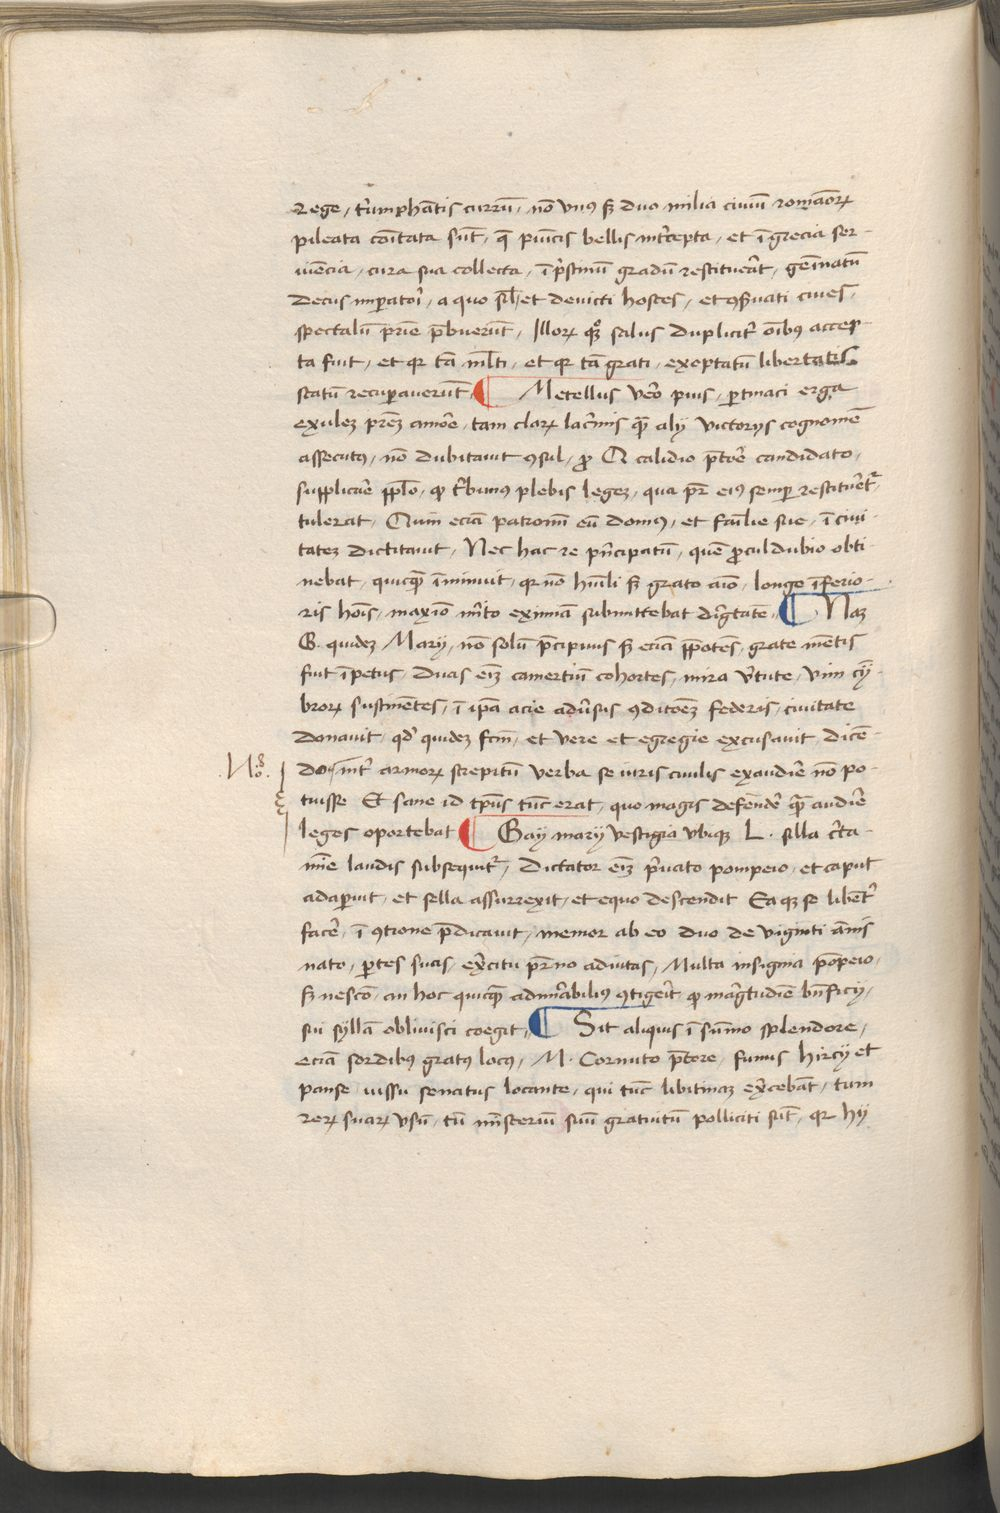 rege, triumphātis currū, nō vnꝰ sꝫ duo milia ciuiū romāoꝝ
pileata cōitata sūt, q̄ pūicis bellis intercepta, et ī grecia ser-
uiēcia, cura sua collecta, ī pristinū gradū restituerat, gemīatū
decus imperatori, a quo siml̄ et deuicti hostes, et ꝯseruati ciues,
spectalū pr̄ie p̄buerūt, Illoꝝ quoqꝫ salus duplicit̄ oībus accep-
ta fuit, et qꝛ tā ml̄ti, et qꝛ tā grati, exoptatū libertatis
statū recuperauerūt, ¶ Metellus vero pius, pertinaci erga
exulē pr̄eꝫ amore, tam claroꝝ lacrimis quā alijs victorijs cognomē
assecutꝰ, nō dubitauit ꝯsul, ꝓ Q calidio p̄tore candidato,
supplicare pplo, qꝛ tribunꝰ plebis legeꝫ, qua pr̄ eiꝰ semper restitueret̄,
tulerat, Quin eciā patronū eū domꝰ, et familie sue, ī ciui-
tateꝫ dictitauit, Nec hac re pn̄cipatū, quē ꝓculdubio obti-
nebat, quicqꝫ īminuit, qꝛ nō hūili sꝫ grato aīo, longe īferio-
ris hoīs, maximo merito eximiā submittebat dignitatē, ¶ Naꝫ
G. quideꝫ Marij, nō solū p̄cipuus sꝫ eciā p̄potēs, grate mētis
fuit īpetus, Duas eīꝫ camertiū cohortes, mira virtute, vim cȳ-
broꝝ sustinentes, ī ipa acie aduersus ꝯditōeꝫ federis, ciuitate
donauit, qd̄ quideꝫ fcm̄, et vere et egregie excusauit, dicē-
.No.
do, int̄ armoꝝ strepitū verba se iuris ciuilis exaudire nō po-
tuisse Et sane id tp̄us tūc erat, quo magis defendere quā audire
leges oportebat ¶ Gay marij vestigia vbiqꝫ L. silla certa-
mīe laudis subsequit̄, Dictator eīꝫ priuato pompeio, et caput
adaperuit, et sella assurrexit, et equo descendit Ea qꝫ se libent̄
facere, ī ꝯtione p̄dicauit, memor ab eo duo de viginti ānis
nato, partes suas, exercitu pr̄no adiutas, Multa insignia pōpeio,
sꝫ nescio, an hoc quicqꝫ admirabilius ꝯtigerit qꝛ magnitudīe bn̄ficij,
sui syllā obliuisci coegit, ¶ Sit aliquis ī sūmo splendore,
eciā sordibꝰ gratꝰ locꝰ, M. Cornuto p̄tore, funus hircij et
panse iussu senatus locante, qui tūc libitinaꝫ exercebāt, tum
reꝝ suaꝝ vsū, tū mīsteriū suū gratuitū polliciti sūt, qꝛ hij